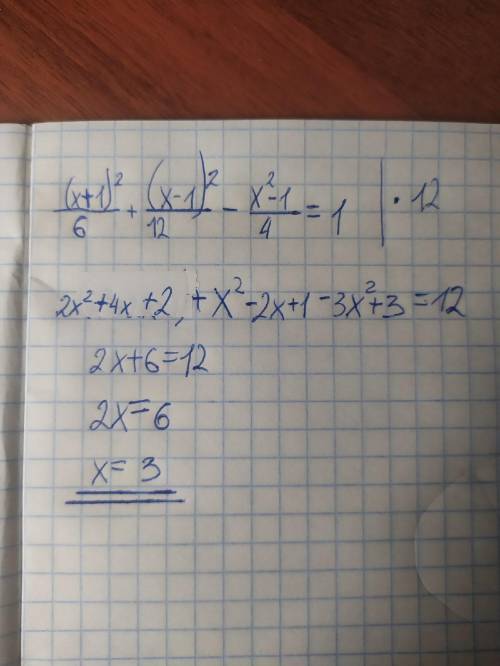 (x+1)²/6 + (x-1)²/12 - x²-1/4 = 1 | · 12
2x²+4x+2, +x²-2x+1-3x²+3=12
2x+6=12
2x=6
x= 3